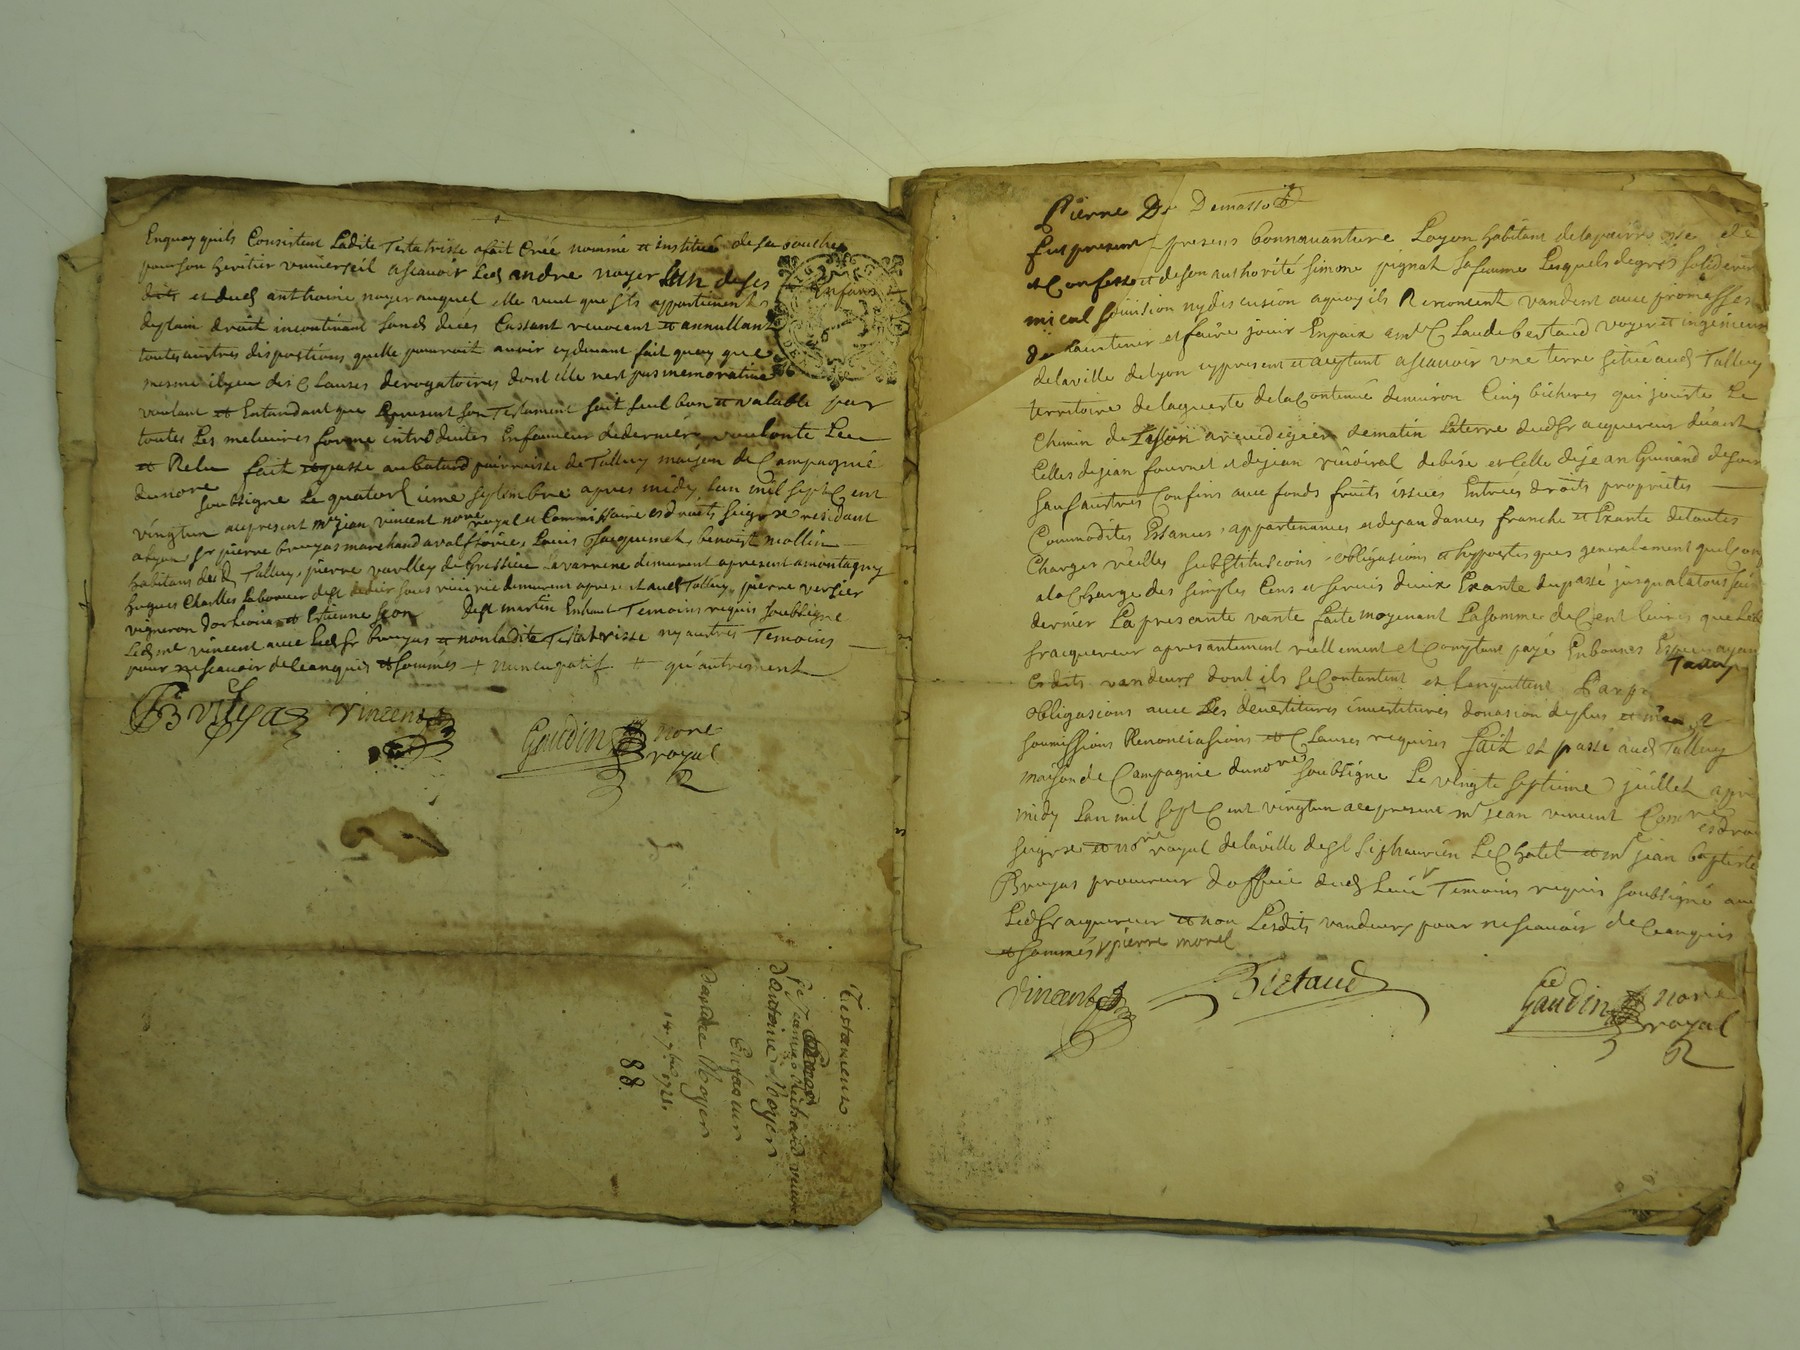 Enquoy quils Consistent Ladite Testatrisse a fait Créé nommé et institué de sa bouche
pour son heritier universeil ascavoir led andre noyer lun deses Enfans
et dud anthoine noyer auquel elle veut que ses appartienent
de plain droit incontinant sond deces Cassant revocant et annullant
toutes austres dispostions quelle pourroit avoir cydevant fait quoy que
mesme il y eu des Clauses derogatoires dont elle nest pas memorative
voulant et Entandant que le present son Testament soit seul bon et valable par
toutes les melieures forme introduites Enfaveur de dernier voulonte Leu
et Relu fait et passe au batard pairroisse de Talluy maison de Campagnie
du nore soubsigne Le quatorsieme septembre apres midy lan mil sept Cent
vingtun aupresent mr jean vincent nore royal et Commissaire es droits seigrx residant
a lyon sr pierre bruyas marchand aud Louis Jacquemet, benoist mollin
habitans dud Talluy, pierre varolley de Gressieu La varrine demeurant apresent a montagny
hugues Charlles Laboureur de st demeurent apresent aud Talluy, pierre versier
vigneron dorlienas et Estienne de st martin Enhaut Temoins requis soubsigne
Led mr vincent avec Led sr bruyas et non ladite Testatrisse ny autres Temoins
pour ne scavoir de ce anquis et sommés + nuncupatif + qu'autrement
Bruyas vincent Gaudin nore
royal
Testament
de Richard veuve
dantoine Noyer
En faveur
dandre Noyer
14 7bre 1721.
88.
Pierre Dr Demasso
fut present presens bonnavanture Loyon habitant de la pairroisse de
et Confesse et de son authorité simone pignat sa femme Lesquels de gres solidairem
mieul division ny discusion a quoy ils Renoncent vandent avec promesses
de maintenir et faire jouir En paix a mr Claude bertaud voyer et ingenieur
de la ville de lyon cy present et aceptant ascavoir une terre situé aud Talluy
territoire de la querte de la Continué denviron Cinq bicheres qui jouxte Le
Chemin de a de matin La terre dud sr acquereur devant
Celles de jean fournet et de jean de bise et celle de jean Guinand de soir
sauf austres Confins avec fonds fruits issues Entrées droits proprietes
Commodites Essances, appartenances et depandances franche et Exante de toutes
Charges réelles substitusions obligasions et hyppoteques generalement quelcon
a la Charge des simples Cens et servis deux Exante du passé jusqualatous sai
dernier La presante vante faite moyenant La somme de Cent livres que led
sr acquereur apresantement réellement et Comptant payé En bonnes Espesses ayan
es dits vandeurs dont ils se Contantent et lenquittent Par
obligasions avec Les devestitures investitures donasion de plus
soumissions Renonciasions et Clauses requises fait et passé aud Talluy
maison de Campagnie du nore soubsigne Le vingte septieme juillet apre
midy Lan mil sept Cent vingtun au present mr jean vincent Comre es droi
seigrx et nore royal de la ville de st siphaurien Le Chatel et mr jean baptiste
Bruyas procureur doffice dud Lieu Temoins requis soubsigné avec
Led sr acquereur et non Lesdits vandeurs pour ne scavoir de ce anquis
et sommés pierre morel
Vincent Bertaud Gaudin nore
royal